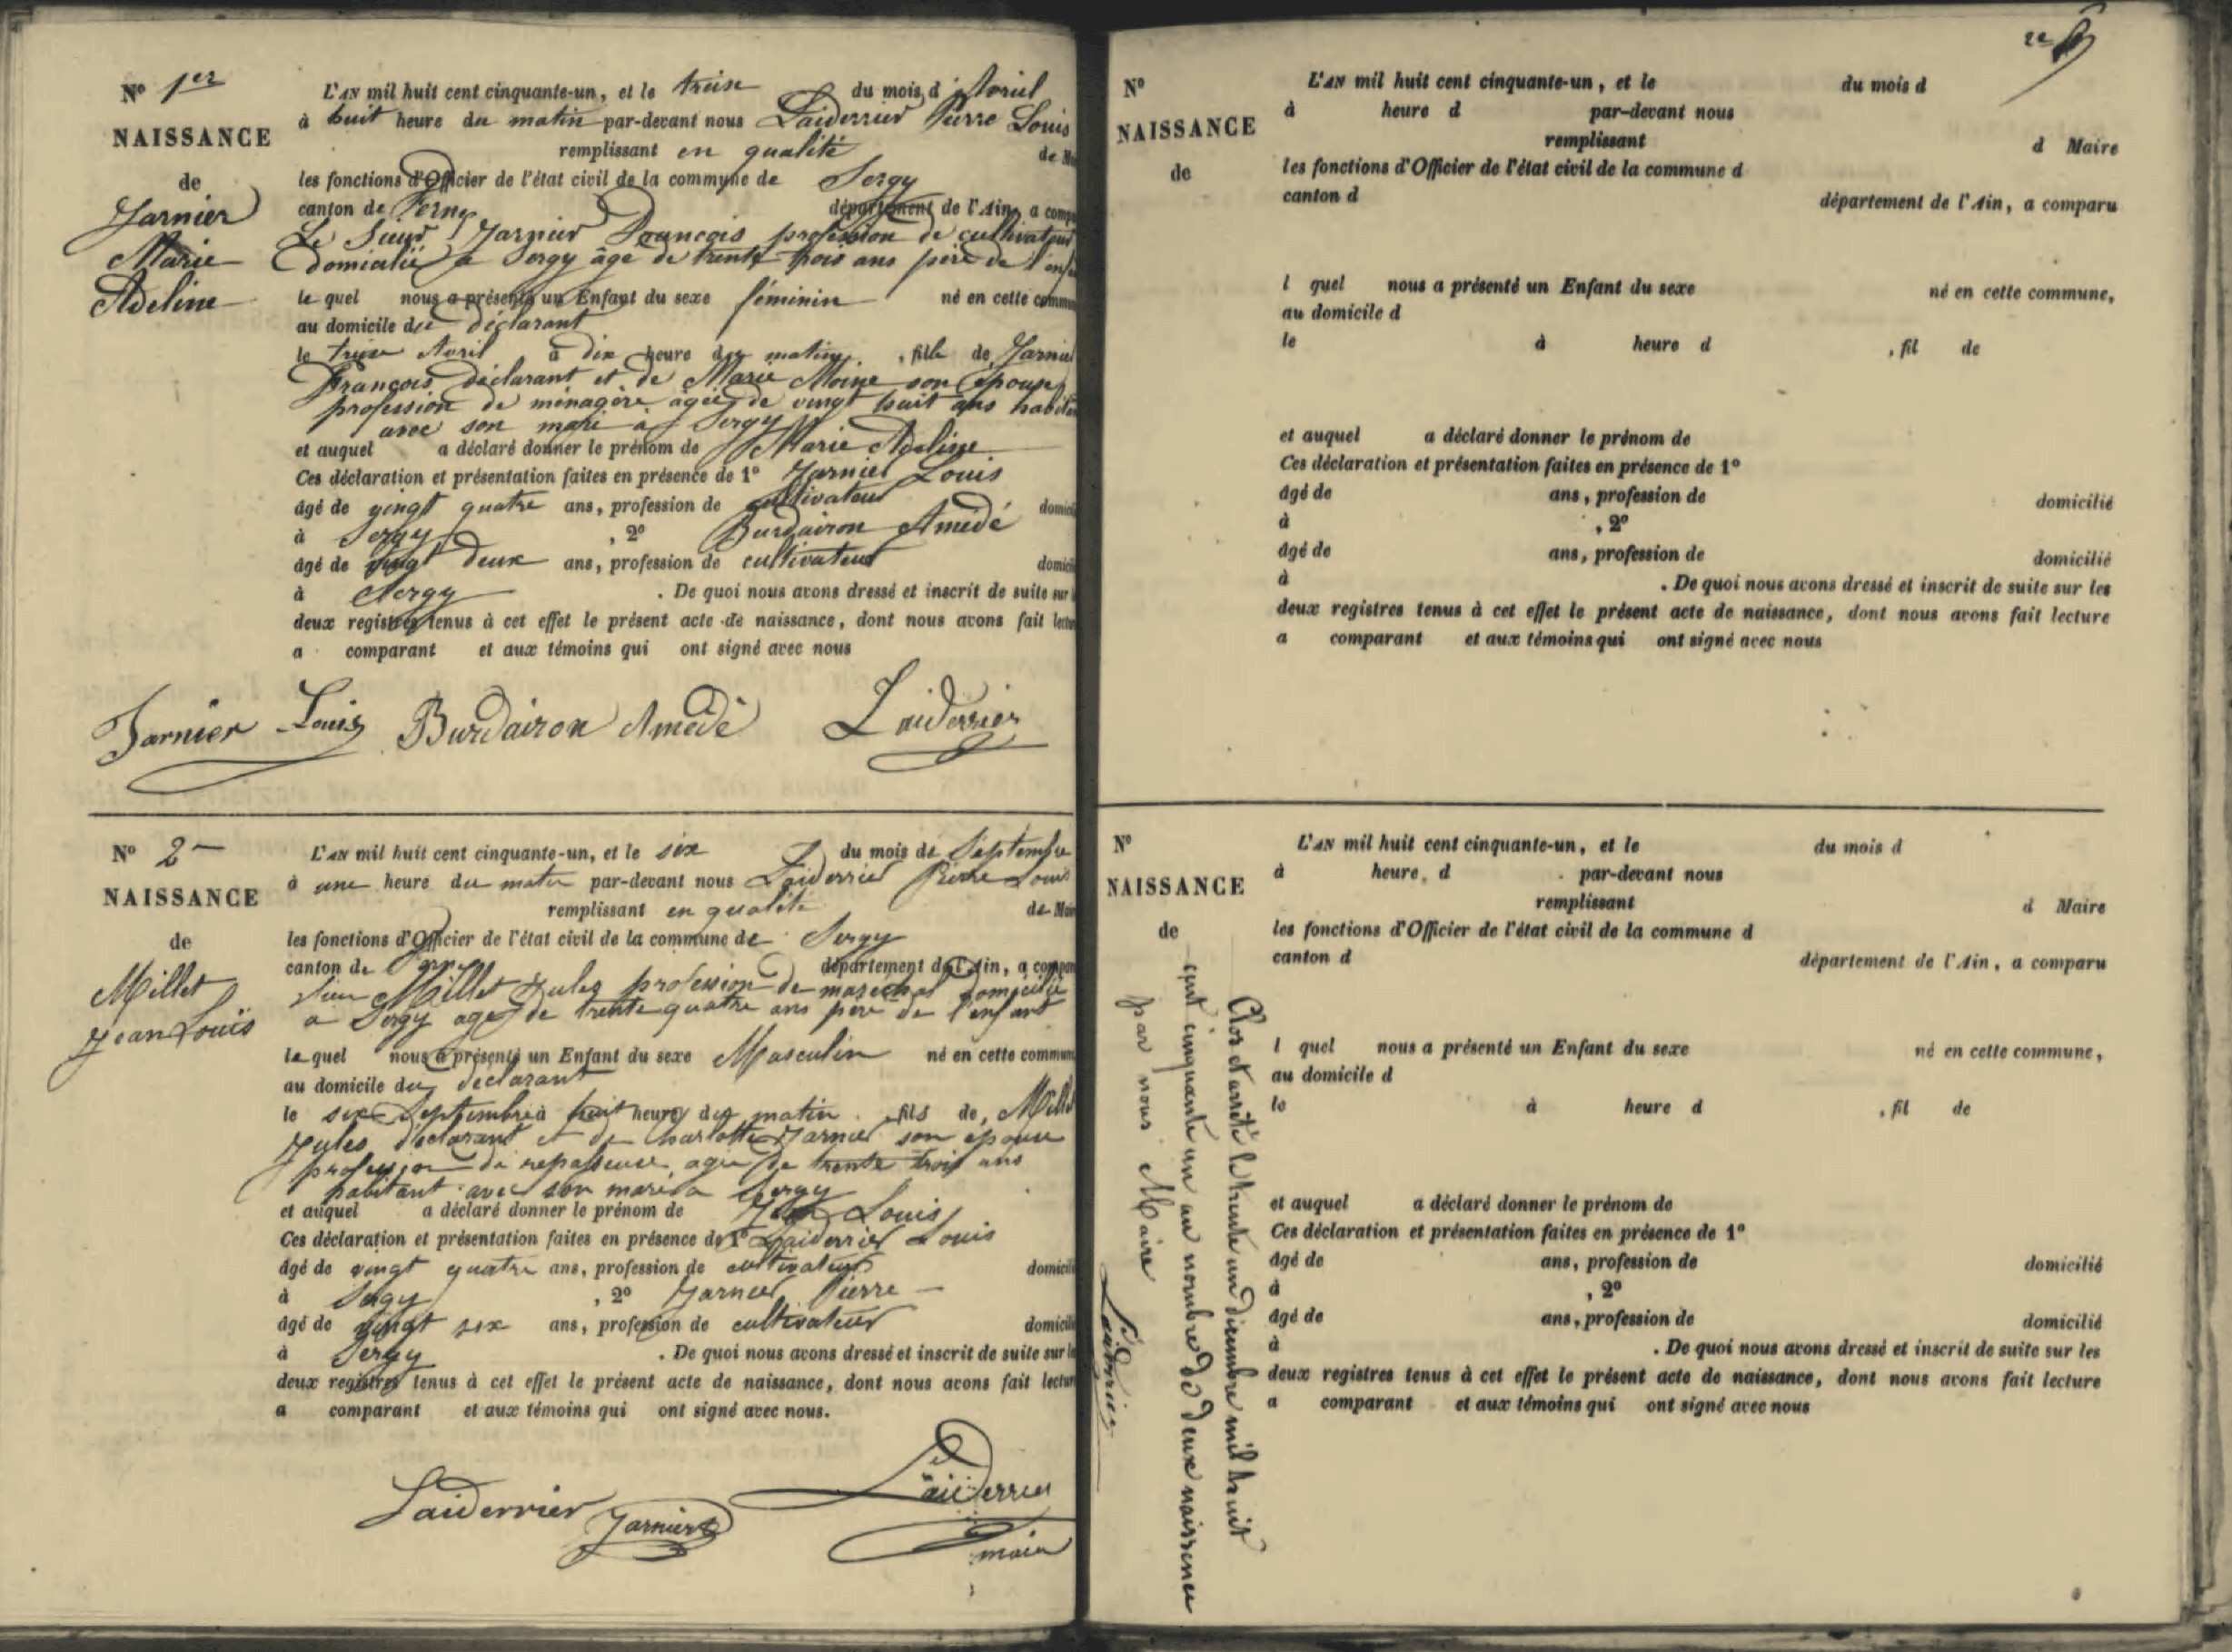 Nº 1er
NAISSANCE
de
Jarnier
Marie
Adeline
L'AN mil huit cent cinquante-un, et le treise du mois d'Avril
à huit heure du matin par-devant nous Laiderrier Pierre Louis
remplissant en qualité de
les fonctions d'Officier de l'état civil de la commune de Sergy
canton de Ferney département de l'Ain, a
Le Sieur Jarnier François profession de cultivateur
domicilié a Sergy âgé de trente trois ans père de
le quel nous a présenté un Enfant du sexe féminin né en cette
au domicile du déclarant
le treise Avril à dix heure du matin, fille de Jarnier
François déclarant et de Marie Moine son épouse
profession de ménagère agée de vingt huit ans
avec son mari a Sergy
et auquel a déclaré donner le prénom de Marie Adeline
Ces déclaration et présentation faites en présence de 1º Jarnier Louis
âgé de vingt quatre ans, profession de cultivateur
à Sergy, 2º Burdairon Amédé
âgé de vingt deux ans, profession de cultivateur
à Sergy. De quoi nous avons dressé et inscrit de suite sur
deux registres tenus à cet effet le présent acte de naissance, dont nous avons fait
a comparant et aux témoins qui ont signé avec nous
Jarnier Louis Burdairon Amédé Laiderrier
Nº 2
NAISSANCE
de
Millet
Jean Louis
L'AN mil huit cent cinquante-un, et le six du mois de Septembre
à une heure du matin par-devant nous Laiderrier Pierre Louis
remplissant en qualité de
les fonctions d'Officier de l'état civil de la commune de Sergy
canton de département de l'Ain, a
Sieur Millet Jules profession de marechal domicilié
a Sergy age de trente quatre ans père de l'enfant
le quel nous a présenté un Enfant du sexe Masculin né en cette
au domicile du declarant
le six Septembre à huit heure du matin, fils de, Millet
Jules declarant et de Charlotte Jarnier son epouse
profession de repasseuse, agée de trente trois ans
habitant avec son mari a Sergy
et auquel a déclaré donner le prénom de Louis
Ces déclaration et présentation faites en présence de 1º Laiderrier Louis
âgé de vingt quatre ans, profession de cultivateur
à Sergy, 2º Jarnier Pierre
âgé de vingt six ans, profession de cultivateur
à Sergy. De quoi nous avons dressé et inscrit de suite sur
deux registres tenus à cet effet le présent acte de naissance, dont nous avons fait
a comparant et aux témoins qui ont signé avec nous.
Laiderrier Jarnier Laiderrier
maire
Nº
NAISSANCE
de
L'AN mil huit cent cinquante-un, et le du mois d
à heure d par-devant nous
remplissant d Maire
les fonctions d'Officier de l'état civil de la commune d
canton d département de l'Ain, a comparu
l quel nous a présenté un Enfant du sexe né en cette commune,
au domicile d
le à heure d , fil de
et auquel a déclaré donner le prénom de
Ces déclaration et présentation faites en présence de 1º
âgé de ans, profession de domicilié
à , 2º
âgé de ans, profession de domicilié
à . De quoi nous avons dressé et inscrit de suite sur les
deux registres tenus à cet effet le présent acte de naissance, dont nous avons fait lecture
a comparant et aux témoins qui ont signé avec nous
Nº
NAISSANCE
de
L'AN mil huit cent cinquante-un, et le du mois d
à heure, d par-devant nous
remplissant d Maire
les fonctions d'Officier de l'état civil de la commune d
canton d département de l'Ain, a comparu
l quel nous a présenté un Enfant du sexe né en cette commune,
au domicile d
le à heure d , fil de
et auquel a déclaré donner le prénom de
Ces déclaration et présentation faites en présence de 1º
âgé de ans, profession de domicilié
à , 2º
âgé de ans, profession de domicilié
à . De quoi nous avons dressé et inscrit de suite sur les
deux registres tenus à cet effet le présent acte de naissance, dont nous avons fait lecture
a comparant et aux témoins qui ont signé avec nous
Clos et arrêté le trente un Dicembre mil huit
cent cinquante un au nombre de deux naissence
par nous Maire
Laiderrier